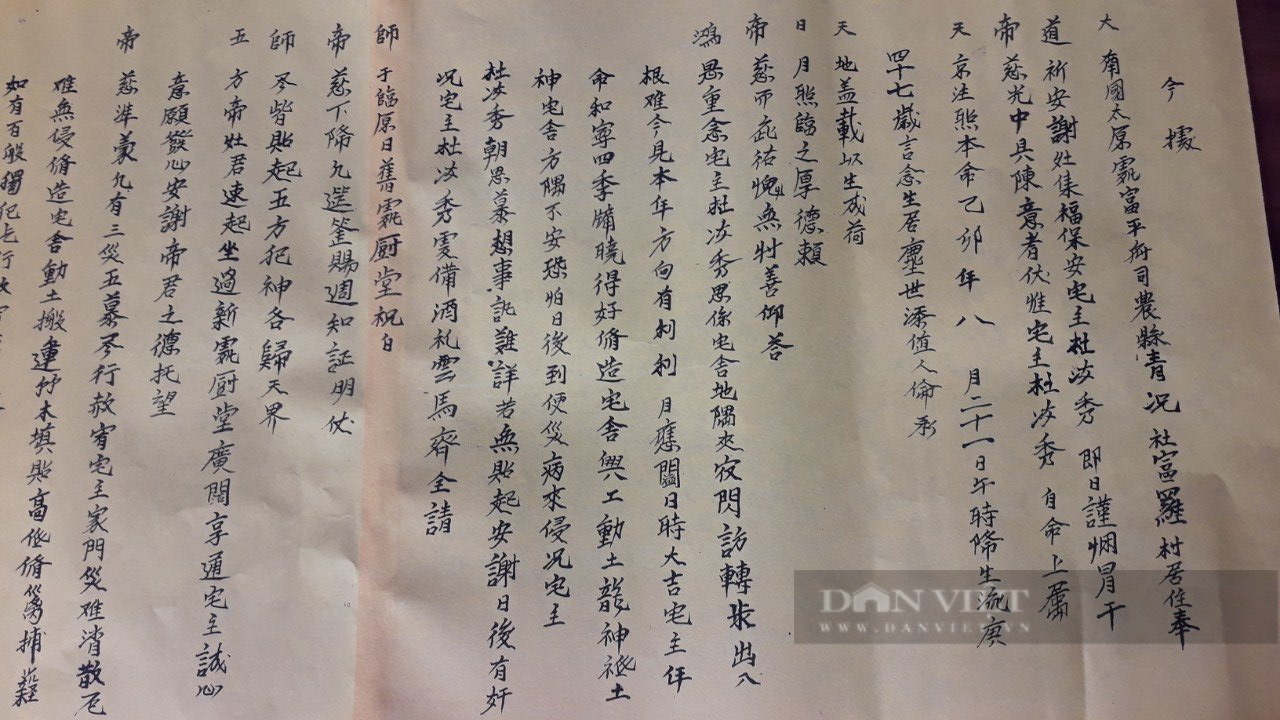 今據
大南國太原處富平府司農縣青况社富羅村居住奉
道祈安謝灶集福保安宅主杜 秀即日謹悃冐干
帝慈光中具陳意者伏惟宅主杜 秀自命上屬
天京注照本命乙卯年八月二十一日午時降生流庚
四十七歲言念生居塵世添值人倫承
天地盖載以生成荷
日月照臨之厚德賴
帝慈而庇佑愧無寸善仰答
鴻恩重念宅主杜 秀思係宅舍地隅 寂閃訪轉 出入
根难今見本年方向有利利月應 日時大吉宅主年
命和寧四季 曉得好脩造宅舍興工動土龍神祗土
神宅舍方隅不安恐怕日後到便災病來侵况宅主
杜 秀朝思慕想事 難詳若無貼起安謝日後有奸
况宅主杜 秀 備酒礼雲馬齊全請
師于臨原日舊處厨堂祝白
帝慈下降九 筵賜週知証明伏
師尽皆貼起五方犯神各歸天界
五方帝灶君速起坐過新處厨堂廣闊享通宅主誠心
意願發心安謝帝君之德托望
帝慈準蒙九有三災五墓尽行赦宥宅主家門災难消散厄
难無侵脩造宅舍動土搬運竹木填貼高低脩 捕
如有百般獨犯乞行
DAN VIET
WWW.DANVIET.VN